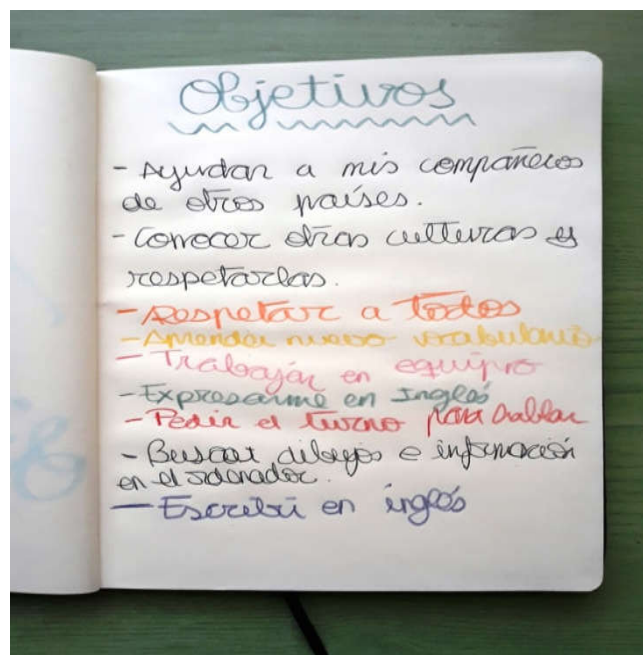 Objetivos
- Ayudar a mis compañeros
de otros países.
- Conocer otras culturas y
respetarlas.
- Respetar a todos
- Aprender nuevo vocabulario
- Trabajar en equipo
- Expresarme en Inglés
- Pedir el turno para hablar
- Buscar dibujos e información
en el ordenador.
- Escribir en inglés